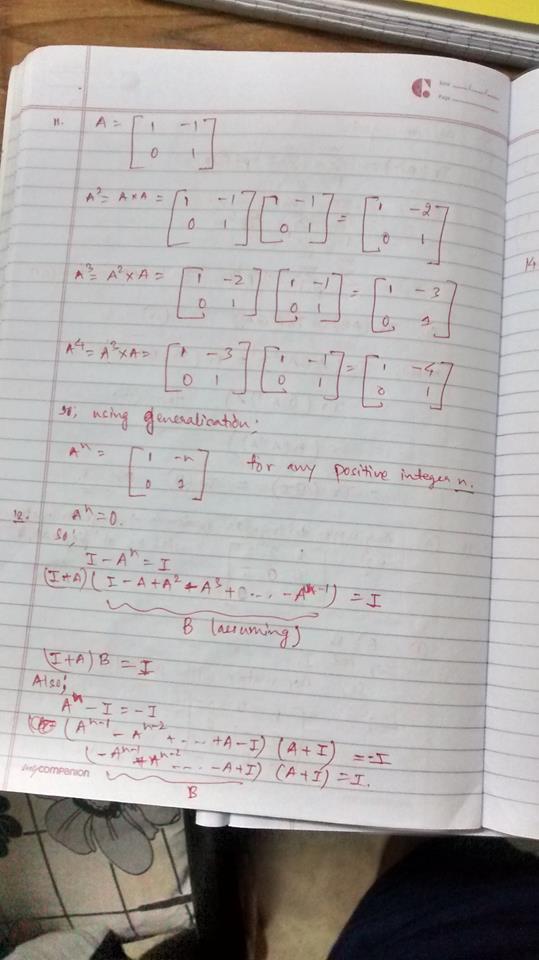 Date
Page
11. A = [ 1 -1 ; 0 1 ]
A² = A×A = [ 1 -1 ; 0 1 ] [ 1 -1 ; 0 1 ] = [ 1 -2 ; 0 1 ]
A³ = A²×A = [ 1 -2 ; 0 1 ] [ 1 -1 ; 0 1 ] = [ 1 -3 ; 0 1 ]
A⁴ = A³×A = [ 1 -3 ; 0 1 ] [ 1 -1 ; 0 1 ] = [ 1 -4 ; 0 1 ]
so; using generalization;
Aⁿ = [ 1 -n ; 0 1 ] for any positive integer n.
12. Aⁿ = 0.
So;
I - Aⁿ = I
(I+A) ( I - A + A² - A³ + ... - Aⁿ⁻¹ ) = I
B (assuming)
(I+A) B = I
Also;
Aⁿ - I = -I
(Aⁿ⁻¹ - Aⁿ⁻² + ... + A - I) (A+I) = -I
(-Aⁿ⁻¹ + Aⁿ⁻² ... - A + I) (A+I) = I.
B
mycompanion
14